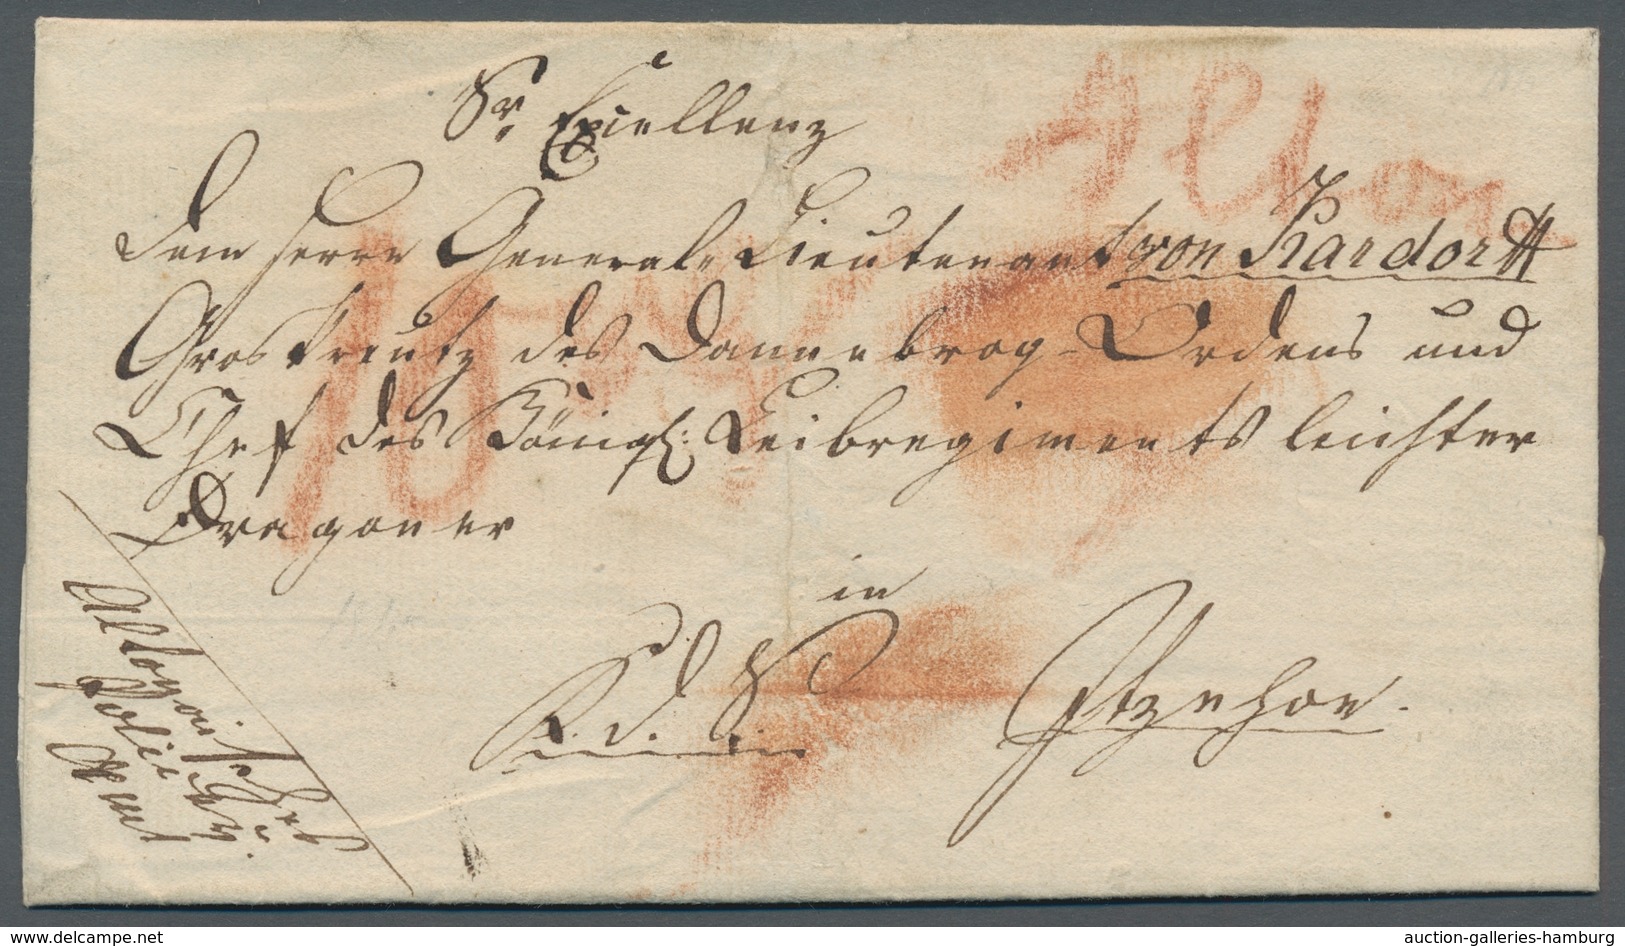 Sr. Excellenz
Altona
Dem Herrn General-Lieutenant von Kardorff
Groskreutz des Dannebrog-Ordens und
Chef des Königl: Leibregiments leichter
Dragoner
in
K. d. S.
Itzehoe.
Altonaisches
Polizey
Amt
www.delcampe.net
auction-galleries-hamburg